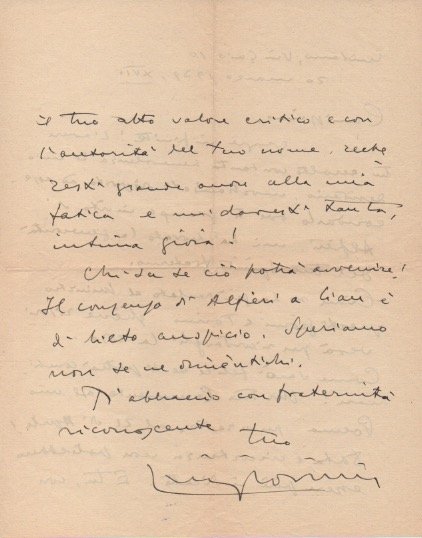 il tuo alto valore critico e con
l'autorità del tuo nome, reche
resti grande onore alla mia
fatica e mi daresti tanta,
intima gioia!
Chissà se ciò potrà avvenire!
Il consenso di Alfieri a Cian è
di lieto auspicio. Speriamo
non se ne dimentichi.
T'abbraccio con fraternità
riconoscente tuo